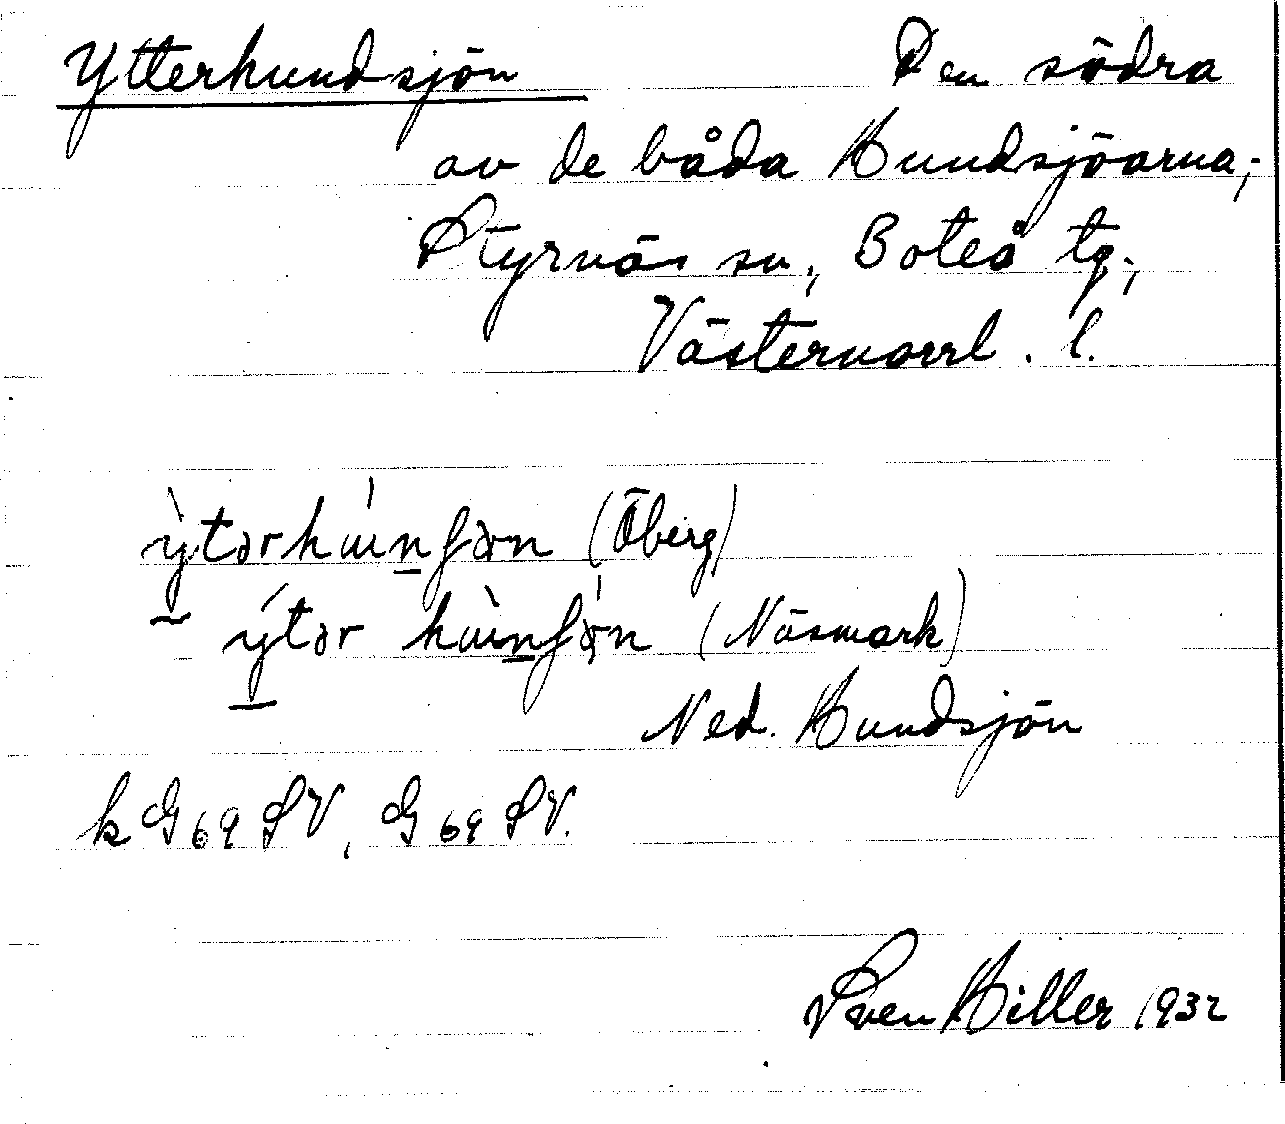 Ytterhundsjön Den södra
av de båda Hundsjöarna;
Styrnäs sn, Boteå tg;
Västernorrl. l.
(Öberg)
(Näsmark)
Ned. Hundsjön
k G 69 SV, G 69 SV.
Sven Hiller 1932